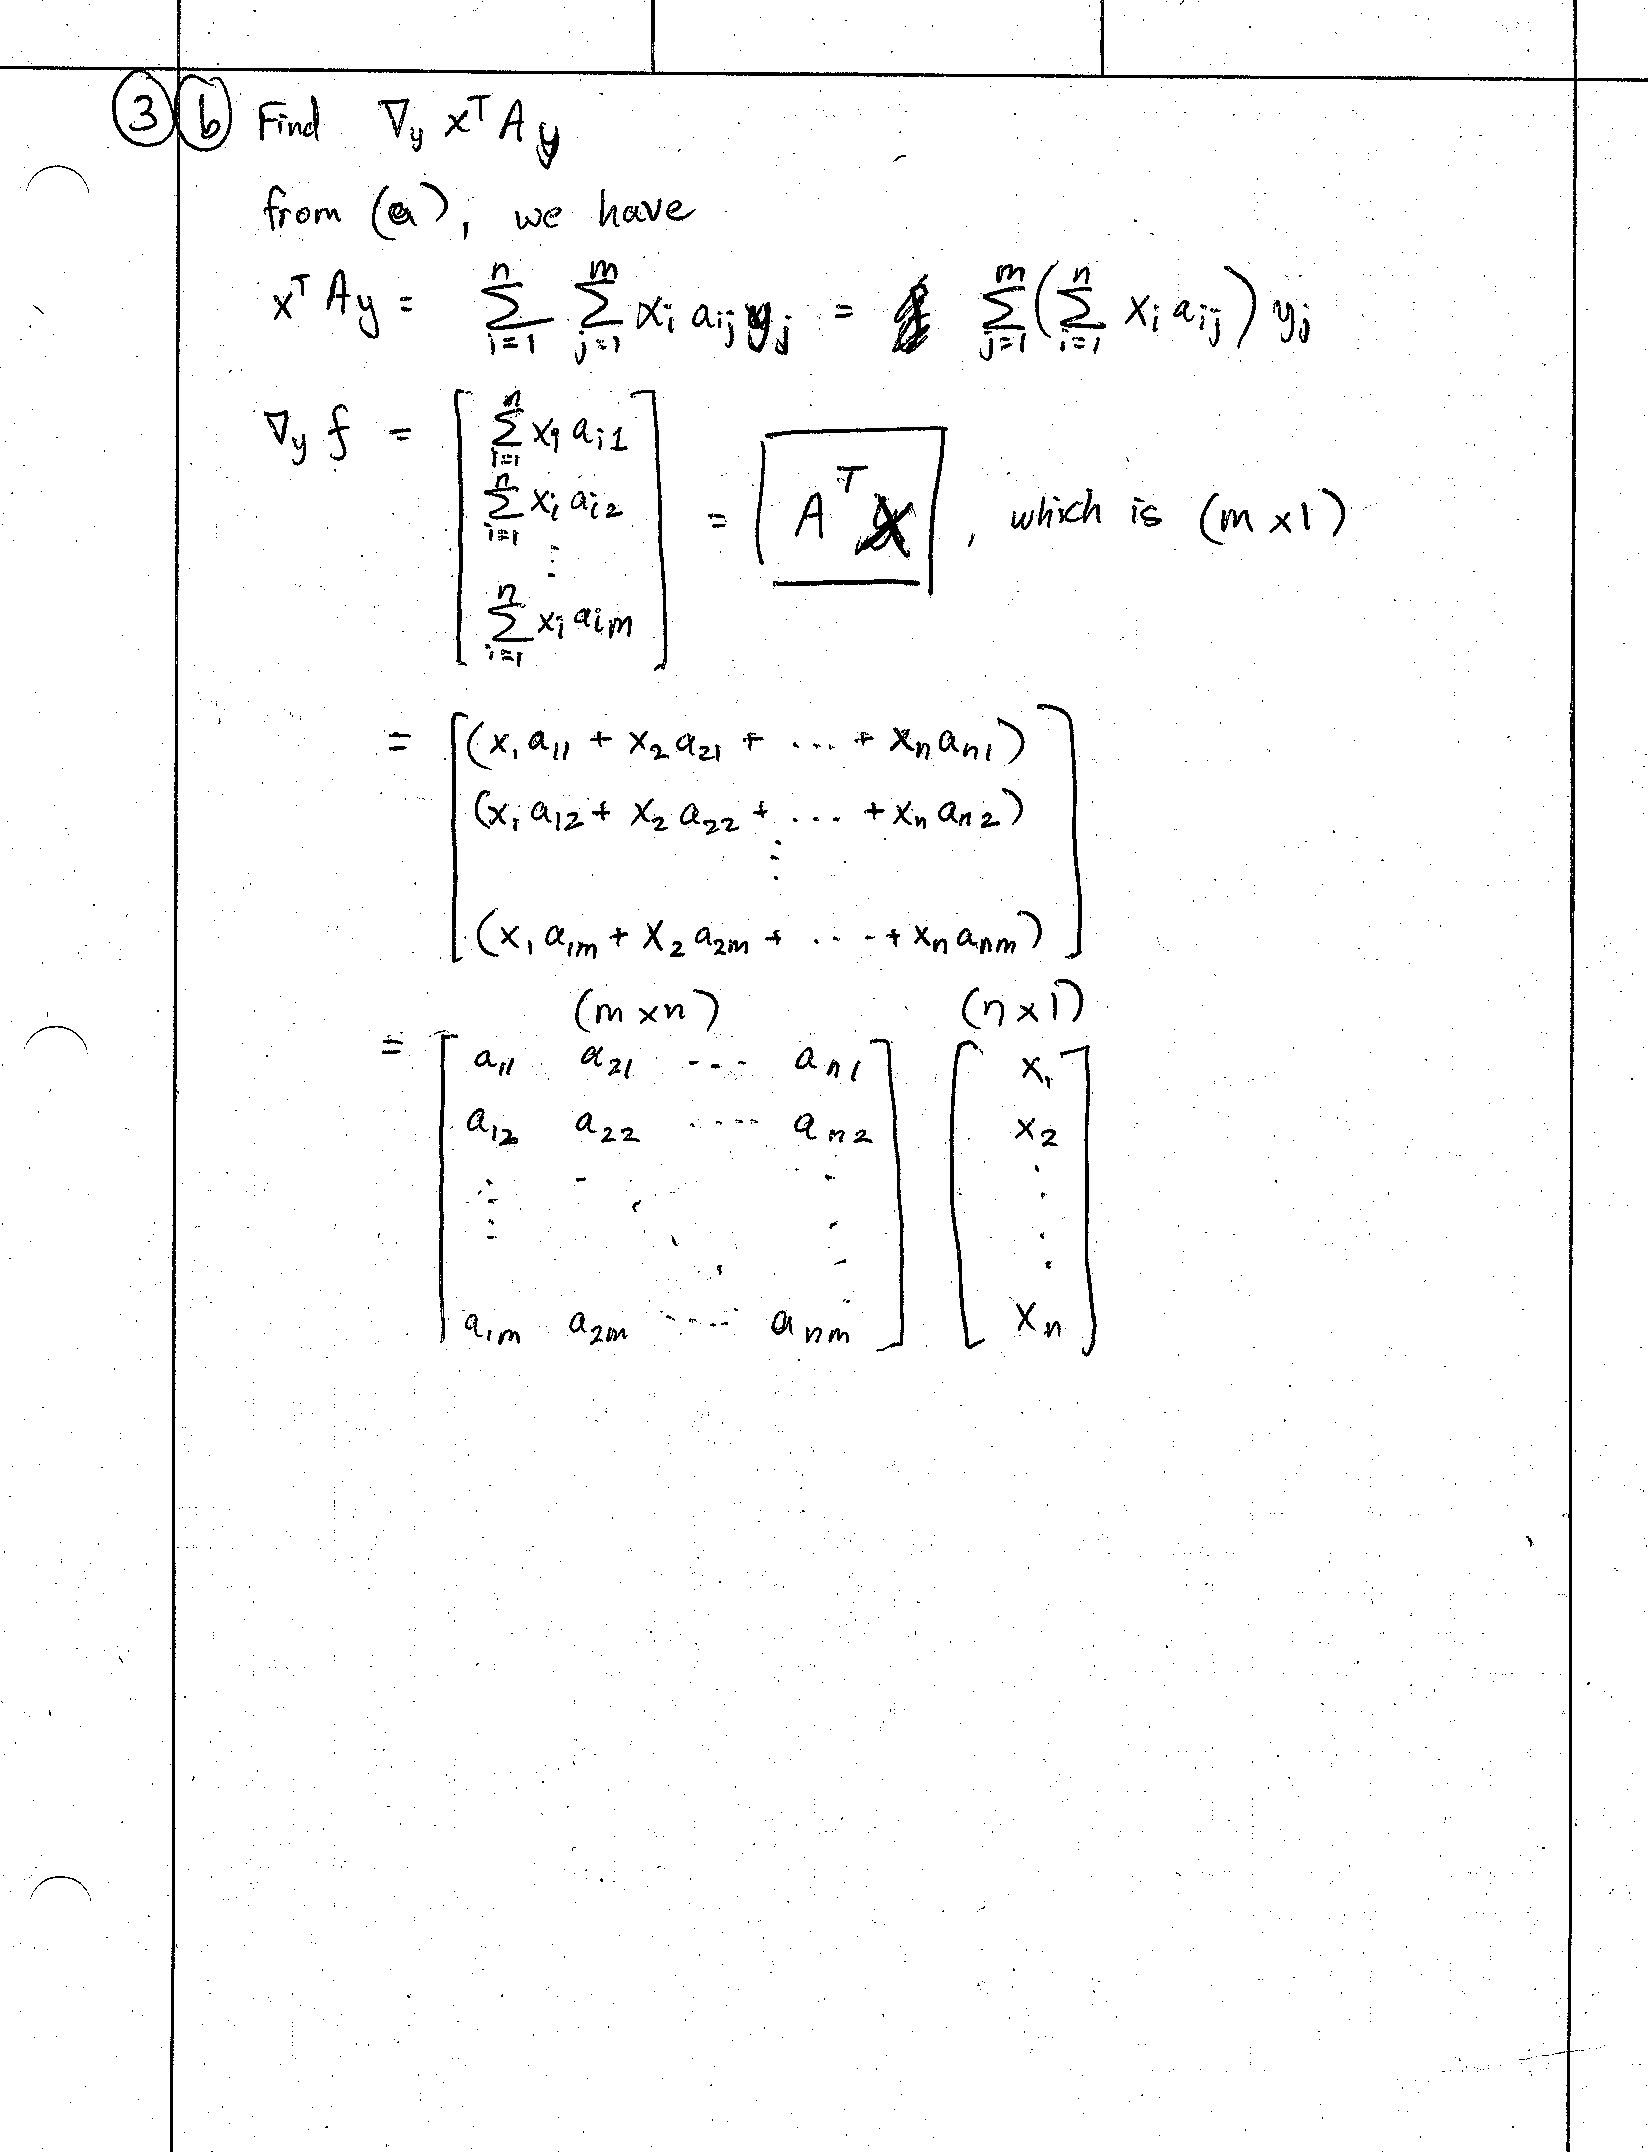 ③ ⓑ Find ∇y xᵀ A y
from (a), we have
xᵀ A y = Σ_{i=1}^{n} Σ_{j=1}^{m} x_i a_ij y_j = Σ_{j=1}^{m} ( Σ_{i=1}^{n} x_i a_ij ) y_j
∇y f = [ Σ_{i=1}^{n} x_i a_i1
Σ_{i=1}^{n} x_i a_i2
⋮
Σ_{i=1}^{n} x_i a_im ] = Aᵀ x , which is (m x 1)
= [ (x_1 a_11 + x_2 a_21 + ... + x_n a_n1)
(x_1 a_12 + x_2 a_22 + ... + x_n a_n2)
⋮
(x_1 a_1m + x_2 a_2m + ... + x_n a_nm) ]
(m x n) (n x 1)
= [ a_11 a_21 --- a_n1 ] [ x_1
a_12 a_22 ---- a_n2 x_2
⋮ ⋱ ⋮ ⋮
a_1m a_2m ..... a_nm ] x_n ]